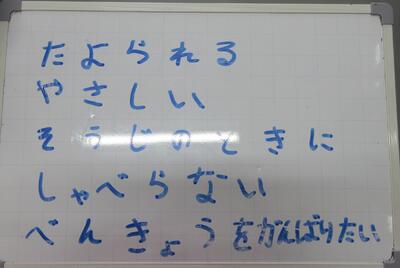 たよられる
やさしい
そうじのときに
しゃべらない
べんきょうをがんばりたい